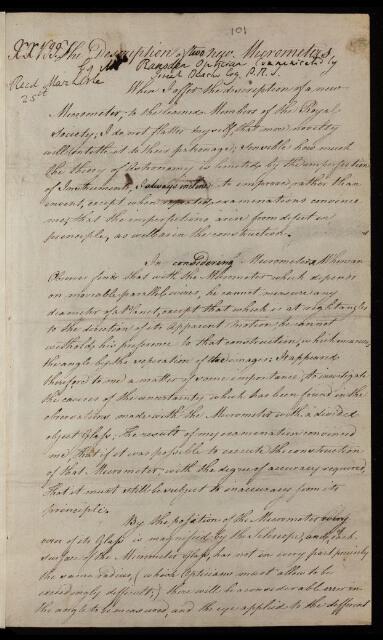 101
XXVII. The Description of two new Micrometers,
by Mr Ramsden Optician Communicated by
Joseph Banks Esq. P.R.S.
Read March
25th
When I offer the description of a new
Micrometer, to the learned Members of the Royal
Society, I do not flatter myself that mere novelty
will intitle it to their patronage; Sensible how much
the theory of Astronomy is limited by the imperfection
of Instruments, I always to improve, rather than
invent, except when repeated examinations convince
me, that the imperfections arise from defect in
principle, as well as in the construction.
In considering Micrometers, When an
Observer finds that with the Micrometer which depends
on moveable parallel wires, he cannot measure any
diameter of a Planet, except that which is at right angles
to the direction of its apparent motion; he cannot
withold his preference to that construction, which measures
the angle by the seperation of the images; It appeared
therefore to me a matter of some importance, to investigate
the causes of the uncertainty which has been found in the
observations made with the Micrometer with a divided
object Glass; The result of my examination convinced
me, that if it was possible to execute the construction
of that Micrometer with the degree of accuracy required
that it must still be subject to inaccuracy from its
principle.
By the position of the Micrometer every
error of its Glass is magnified by the telescope; and, if each
surface of the Micrometer Glass, has not in every part precisely
the same radius, (which Opticians must allow to be
exceedingly difficult;) there will be considerable error in
the angle to be measured, and the eye applied to the different